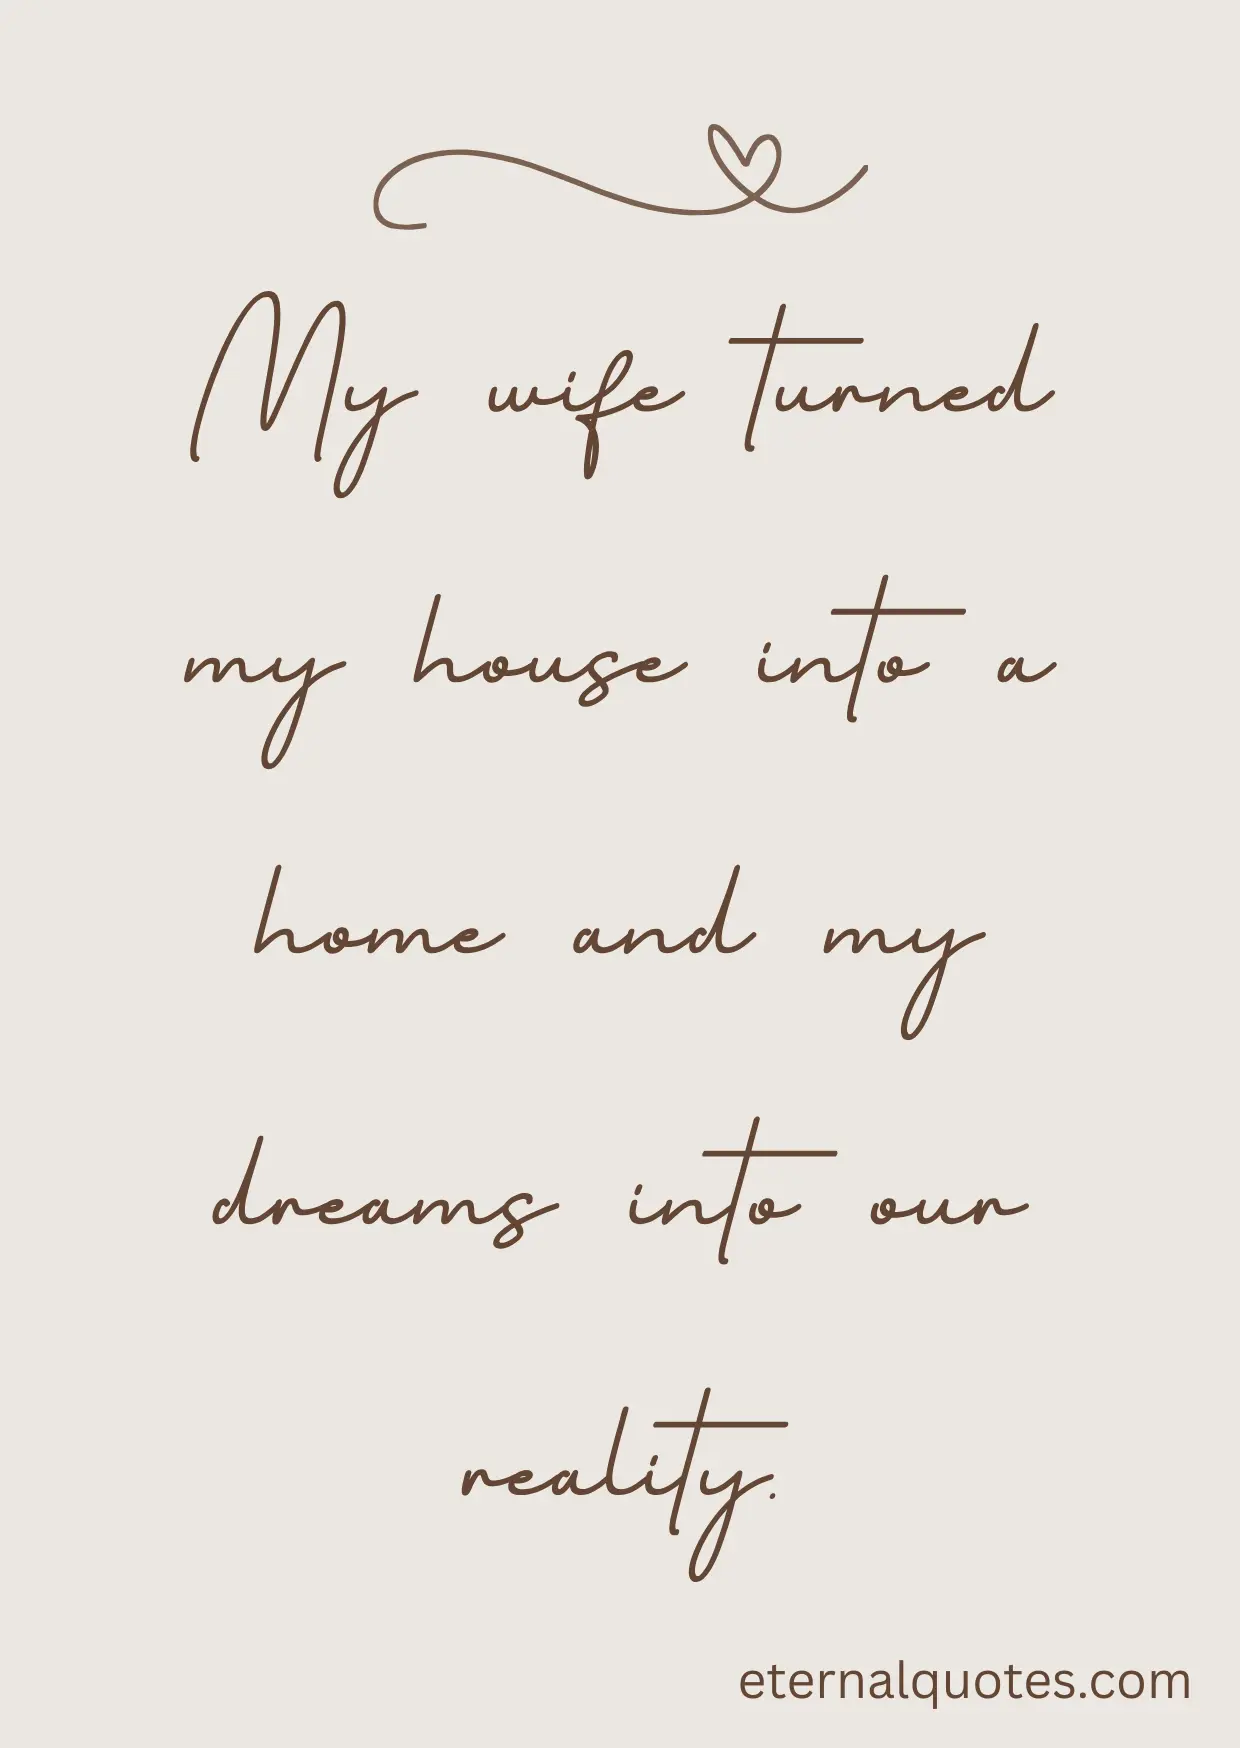 My wife turned
my house into a
home and my
dreams into our
reality.
eternalquotes.com